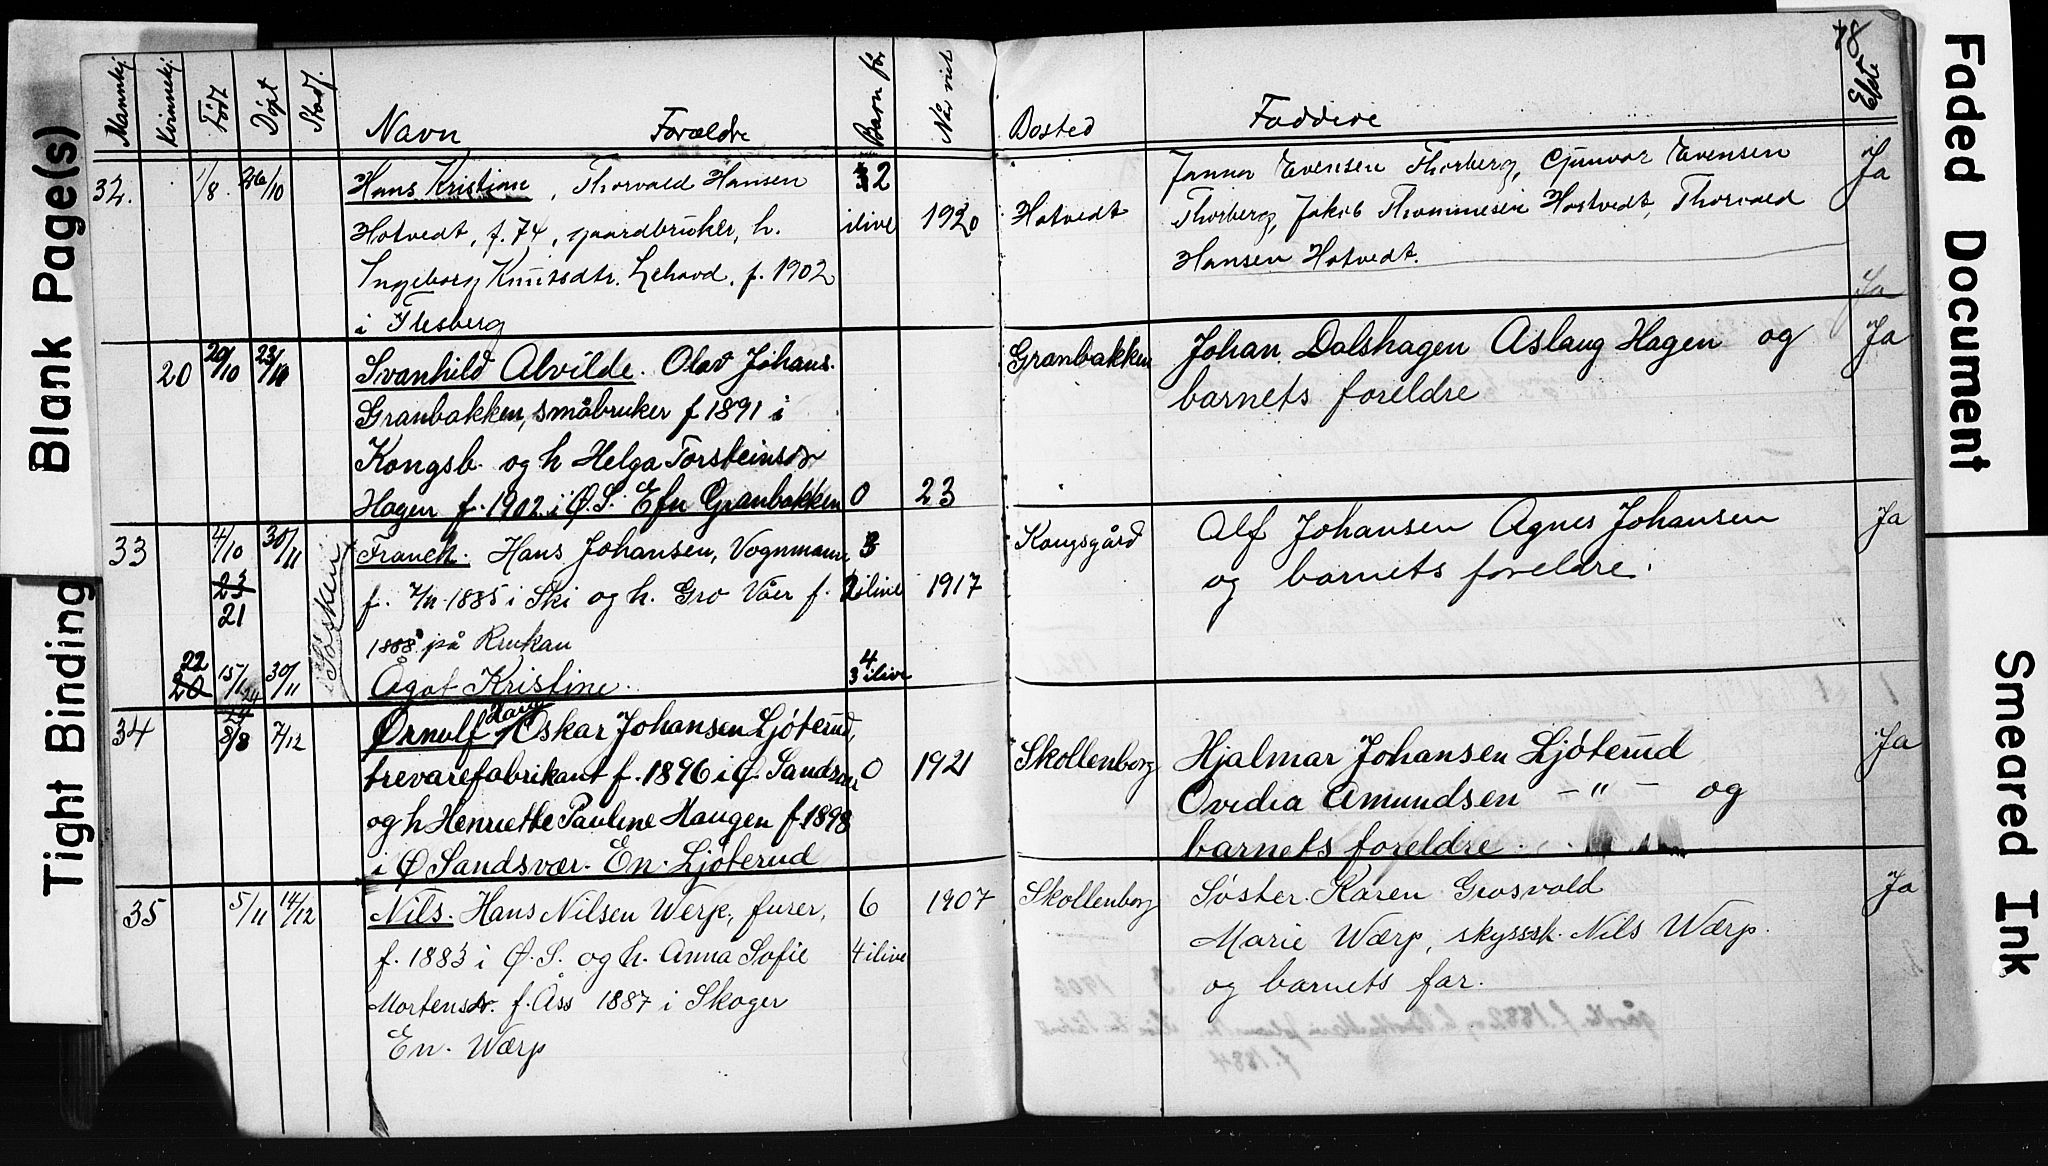 Blank Page(s)
Tight Binding
Faded Document
Smeared Ink
78
Mannkj. Kvinnekj. Født Døpt Stad. Navn Forældre Barn før Når viet Bosted Faddere Ekte
32. 1/8 26/10 Hans Kristian, Thorvald Hansen 2 Jannor Evensen Thorberg, Gunvor Evensen Ja
Hotvedt, f. 74, gaardbruker, h. ilive 1920 Hotvedt Thorberg, Jakob Thommesen Hostvedt, Thorvald
Ingeborg Knutsdtr. Lehovd, f. 1902 Hansen Hotvedt.
i Flesberg Ja
20 20/10 23/10 Svanhild Alvilde. Olav Johans. Granbakken Johan Dalshagen Aslaug Hagen og Ja
Granbakken, småbruker f 1891 i barnets foreldre
Kongsb. og h Helga Torsteinsdr
Hagen f. 1902 i Ø. S. Efn Granbakken 0 23
33 4/10 30/11 Franck. Hans Johansen, Vognmann 3 Kongsgård Alf Johansen Agnes Johansen Ja
23 21 Søsken f. 7/11 1885 i Ski og h. Gro Våer f. 2 ilive 1917 og barnets foreldre.
1888 på Rjukan
22 20 15/1 24 30/11 Ågot Kristine. 4 3 ilive
34 8/8 7/12 Ørnulf Harry Oskar Johansen Ljøterud, Skollenborg Hjalmar Johansen Ljøterud Ja
trevarefabrikant f. 1896 i Ø. Sandsvær 0 1921 Ovidia Amundsen — " — og
og h Henriette Pauline Haugen f. 1898 barnets foreldre.
i Ø Sandsvær. En. Ljøterud
35 5/11 14/12 Nils. Hans Nilsen Werp, furer, 6 1907 Skollenborg Søster Karen Grosvold Ja
f. 1883 i Ø. S. og h. Anna Sofie 4 ilive Marie Wærp, skysssk. Nils Wærp.
Mortensdr. f. Åss 1887 i Skoger og barnets far.
En. Wærp